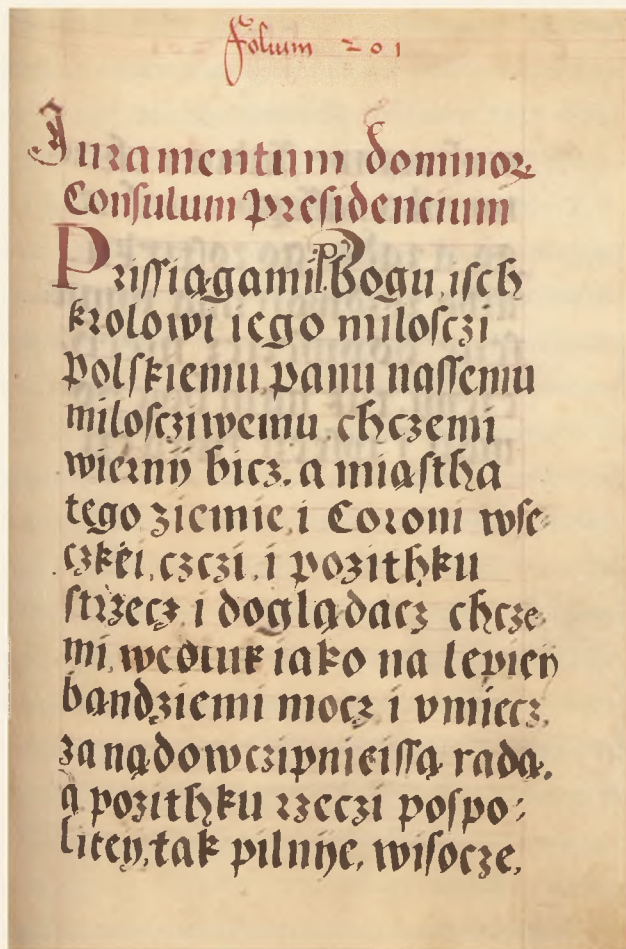 Folium 201
Juramentum dominoꝝ
Consulum presidencium
Prissiągami p. Bogu, isch
krolowi iego milosczi
polskiemu, panu nassemu
miloscziwemu, chczemi
wiernij bicz. a miastha
tego ziemie, i Coroni wse-
czkei, czczi, i pozithku
strzecz, i doglądacz chcze-
mi, wedluk iako na lepien
bandziemi mocz, i vmiecz,
za nądowczipnieissą radą.
a pozithku rzeczi pospo-
litey, tak pilnije, wisocze,